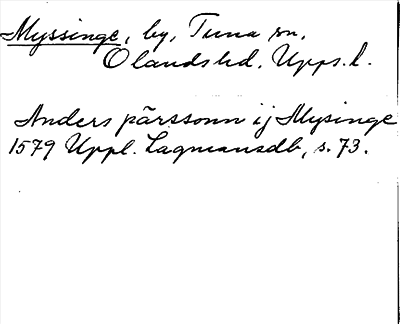 Myssinge, by, Tuna sn,
Olands hd, Upps. l.
Anders pärssonn ij Mysinge
1579 Uppl. Lagmansdb, s. 73.